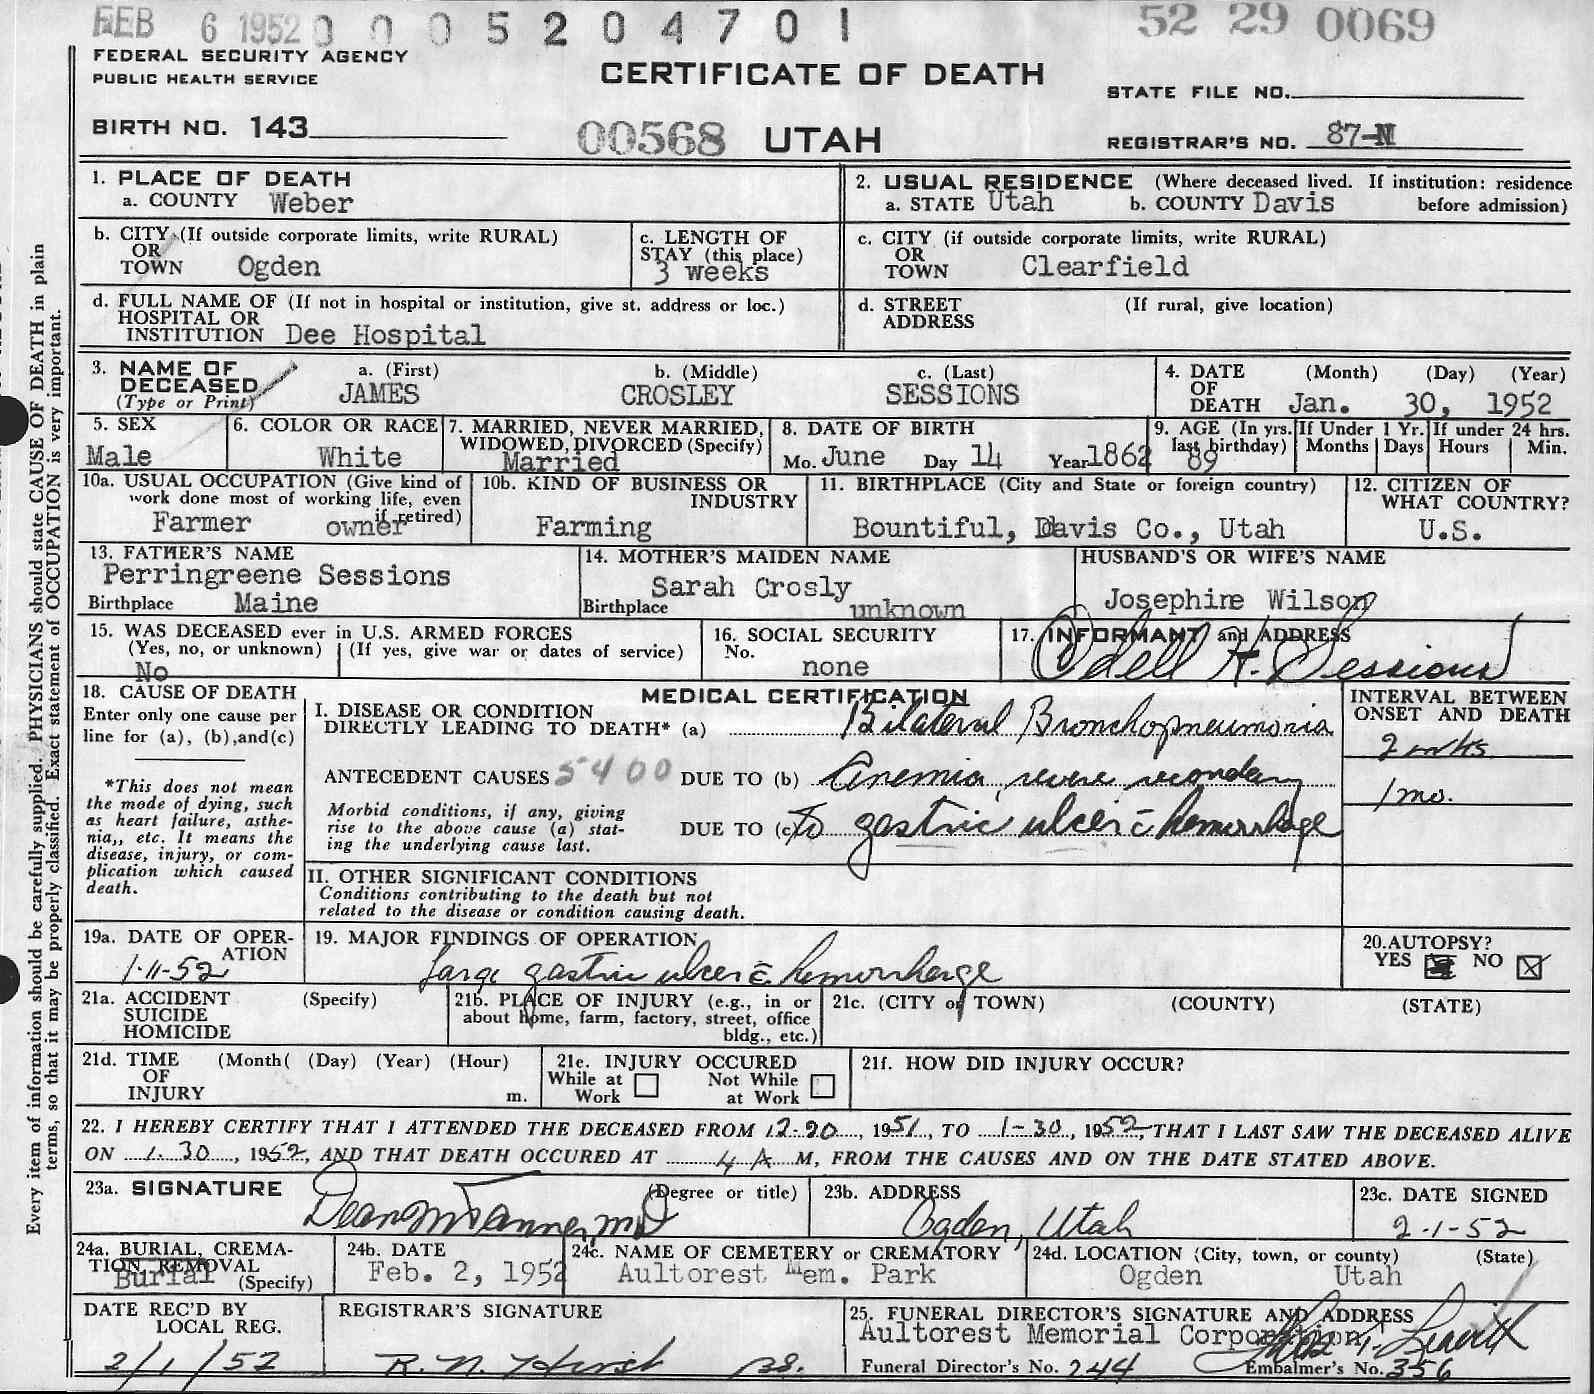 FEB 6 1952 0 0 0 5 2 0 4 7 0 1 52 29 0069
FEDERAL SECURITY AGENCY
PUBLIC HEALTH SERVICE
CERTIFICATE OF DEATH
STATE FILE NO.
BIRTH NO. 143 00568 UTAH REGISTRAR'S NO. 87-N
1. PLACE OF DEATH
a. COUNTY Weber
2. USUAL RESIDENCE (Where deceased lived. If institution: residence
a. STATE Utah b. COUNTY Davis before admission)
b. CITY (If outside corporate limits, write RURAL)
OR
TOWN Ogden
c. LENGTH OF
STAY (this place)
3 weeks
c. CITY (if outside corporate limits, write RURAL)
OR
TOWN Clearfield
d. FULL NAME OF (If not in hospital or institution, give st. address or loc.)
HOSPITAL OR
INSTITUTION Dee Hospital
d. STREET (If rural, give location)
ADDRESS
3. NAME OF
DECEASED
(Type or Print)
a. (First) b. (Middle) c. (Last)
JAMES CROSLEY SESSIONS
4. DATE (Month) (Day) (Year)
OF
DEATH Jan. 30, 1952
5. SEX
Male
6. COLOR OR RACE
White
7. MARRIED, NEVER MARRIED,
WIDOWED, DIVORCED (Specify)
Married
8. DATE OF BIRTH
Mo. June Day 14 Year 1862
9. AGE (In yrs.
last birthday)
89
If Under 1 Yr.
Months Days
If under 24 hrs.
Hours Min.
10a. USUAL OCCUPATION (Give kind of
work done most of working life, even
if retired)
Farmer owner
10b. KIND OF BUSINESS OR
INDUSTRY
Farming
11. BIRTHPLACE (City and State or foreign country)
Bountiful, Davis Co., Utah
12. CITIZEN OF
WHAT COUNTRY?
U.S.
13. FATHER'S NAME
Perringreene Sessions
Birthplace Maine
14. MOTHER'S MAIDEN NAME
Sarah Crosly
Birthplace unknown
HUSBAND'S OR WIFE'S NAME
Josephine Wilson
15. WAS DECEASED ever in U.S. ARMED FORCES
(Yes, no, or unknown) (If yes, give war or dates of service)
No
16. SOCIAL SECURITY
No.
none
17. INFORMANT and ADDRESS
Odell H. Sessions
18. CAUSE OF DEATH
Enter only one cause per
line for (a), (b),and(c)
*This does not mean
the mode of dying, such
as heart failure, asthe-
nia,, etc. It means the
disease, injury, or com-
plication which caused
death.
MEDICAL CERTIFICATION
I. DISEASE OR CONDITION
DIRECTLY LEADING TO DEATH* (a) Bilateral Bronchopneumonia
ANTECEDENT CAUSES 5400 DUE TO (b) Anemia, severe secondary
Morbid conditions, if any, giving
rise to the above cause (a) stat-
ing the underlying cause last.
DUE TO (c) to gastric ulcer c̄ hemorrhage
INTERVAL BETWEEN
ONSET AND DEATH
2 wks.
1 mo.
II. OTHER SIGNIFICANT CONDITIONS
Conditions contributing to the death but not
related to the disease or condition causing death.
19a. DATE OF OPER-
ATION
1-11-52
19. MAJOR FINDINGS OF OPERATION
Large gastric ulcer c̄ hemorrhage
20.AUTOPSY?
YES NO
21a. ACCIDENT (Specify)
SUICIDE
HOMICIDE
21b. PLACE OF INJURY (e.g., in or
about home, farm, factory, street, office
bldg., etc.)
21c. (CITY or TOWN) (COUNTY) (STATE)
21d. TIME (Month( (Day) (Year) (Hour)
OF
INJURY m.
21e. INJURY OCCURED
While at Not While
Work at Work
21f. HOW DID INJURY OCCUR?
22. I HEREBY CERTIFY THAT I ATTENDED THE DECEASED FROM 12-20, 1951, TO 1-30, 1952, THAT I LAST SAW THE DECEASED ALIVE
ON 1-30, 1952, AND THAT DEATH OCCURED AT 4 A M, FROM THE CAUSES AND ON THE DATE STATED ABOVE.
23a. SIGNATURE (Degree or title)
Dean W Tanner, MD
23b. ADDRESS
Ogden, Utah
23c. DATE SIGNED
2-1-52
24a. BURIAL, CREMA-
TION, REMOVAL
Burial (Specify)
24b. DATE
Feb. 2, 1952
24c. NAME OF CEMETERY or CREMATORY
Aultorest Mem. Park
24d. LOCATION (City, town, or county) (State)
Ogden Utah
DATE REC'D BY
LOCAL REG.
2/1/52
REGISTRAR'S SIGNATURE
R. N. Hirst
25. FUNERAL DIRECTOR'S SIGNATURE AND ADDRESS
Aultorest Memorial Corporation,
Funeral Director's No. 244 Embalmer's No. 356
Every item of information should be carefully supplied. PHYSICIANS should state CAUSE OF DEATH in plain
terms, so that it may be properly classified. Exact statement of OCCUPATION is very important.